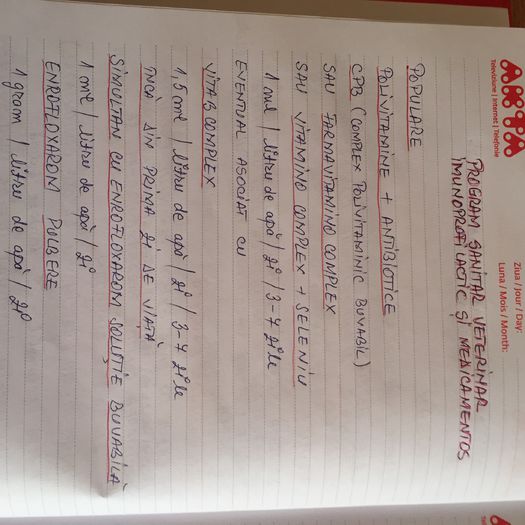 AKTA
Televiziune | Internet | Telefonie
Ziua / Jour / Day:
Luna / Mois / Month:
PROGRAM SANITAR VETERINAR
IMUNOPROFILACTIC ȘI MEDICAMENTOS
POPULARE
POLIVITAMINE + ANTIBIOTICE
CPB (COMPLEX POLIVITAMINIC BUVABIL)
SAU FARMAVITAMINO COMPLEX
SAU VITAMINO COMPLEX + SELENIU
1 ml / litru de apă / zi / 3-7 zile
EVENTUAL ASOCIAT CU
VITAB COMPLEX
1,5 ml / litru de apă / zi / 3-7 zile
ÎNCĂ DIN PRIMA ZI DE VIAȚĂ
SIMULTAN CU ENROFLOXAROM SOLUȚIE BUVABILĂ
1 ml / litru de apă / zi
ENROFLOXAROM PULBERE
1 gram / litru de apă / zi